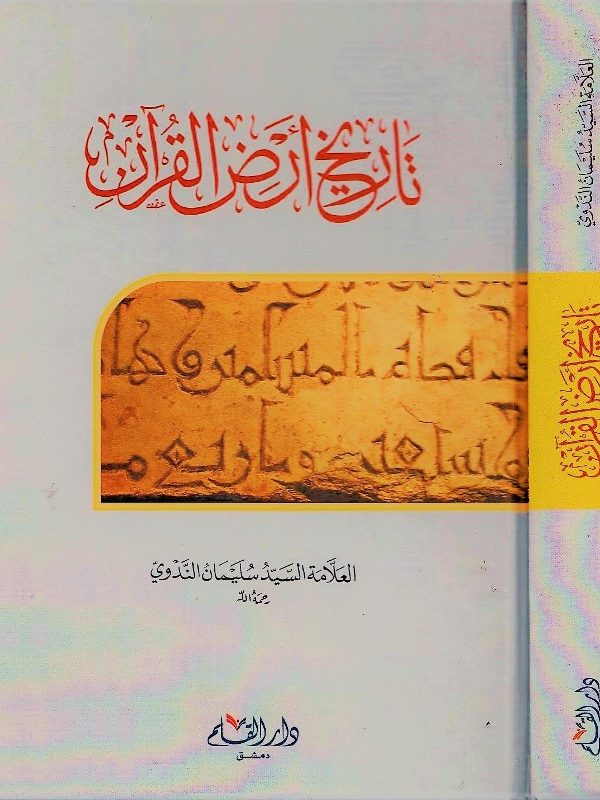 تَارِيخُ أَرْضِ القُرْآنِ
العَلَّامَة السَّيِّدُ سُلَيْمَانُ النَّدْوِيّ
رحمهُ الله
دار القلم
دمشق
العَلَّامَة السَّيِّدُ سُلَيْمَانُ النَّدْوِيّ
تَارِيخُ أَرْضِ القُرْآنِ
دار القلم